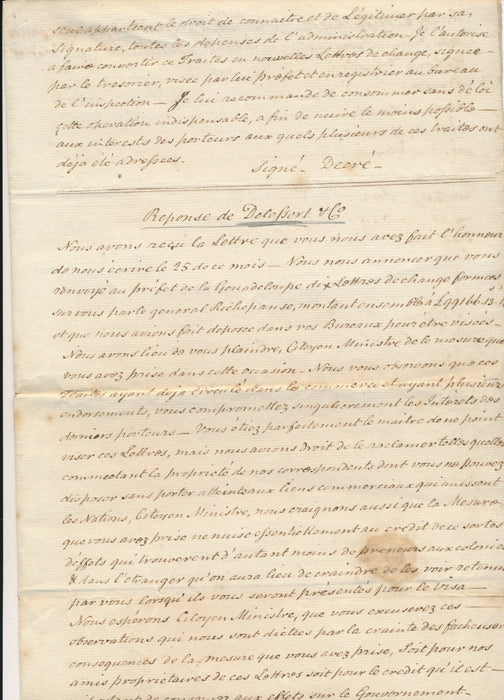 seul appartient le droit de connaitre et de Légitimer par sa
signature, toutes les depenses de l'administration - Je l'autorise
a faire convertir ce Traites en nouvelles Lettres de change, signée
par le tresorier, visée par lui préfet et enregistrier au bureau
de l'inspection — Je lui recommande de consommer sans déloi
cette operation indispensable, a fin de nuire le moins possible —
aux interests des porteurs aux quels plusieurs de ces traites ont
deja été adressées. Signé - Decré -
Reponse de Delessort & Co
Nous avons reçu la Lettre que vous nous avez fait l'honneur
de nous écrire le 25 de ce mois — Nous nous annoncer que vous
renvoyé au préfet de la Gouadeloupe dix Lettres de change formées
sur vous par le general Richepanse, montant ensemble à
et que nous avions fait deposer dans vos Bureaux pour etre visées -
Nous avons lieu de vous plaindre, Citoyen Ministre de le mesure que
vous avez prise dans cette occasion - Nous vous observons que ces
traites ayant deja circulé dans le commerce et ayant plusieurs
endorsements, vous compromettez singulierement les Interets des
derniers porteurs — Vous etiez parfaitement le maitre de ne point
viser ces Lettres, mais nous avions droit de les reclamer telles quelles
comme etant la proprieté de nos correspondents dont vous ne pouvez
disposer sans porter atteinte aux liens commerciaux qui unissent
les Nations, Citoyen Ministre, nous craignons aussi que la Mesure
que vous avez prise ne nuise essentiellement au credit de ce sortes
d'effets qui trouveront d'autant moins de preneurs aux colonies
& dans l'etranger qu'on aura lieu de craindre de les voir retenus
par vous lorsqu'ils vous seront presentés pour le visa —
Nous espérons Citoyen Ministre, que vous excuserez ces —
observations qui nous sont dictées par la crainte des facheuses
consequences de la mesure que vous avez prise, soit pour nos
amis propriétaires de ces Lettres soit pour le credit qu'il est —
de conserver aux effets sur le Gouvernement -